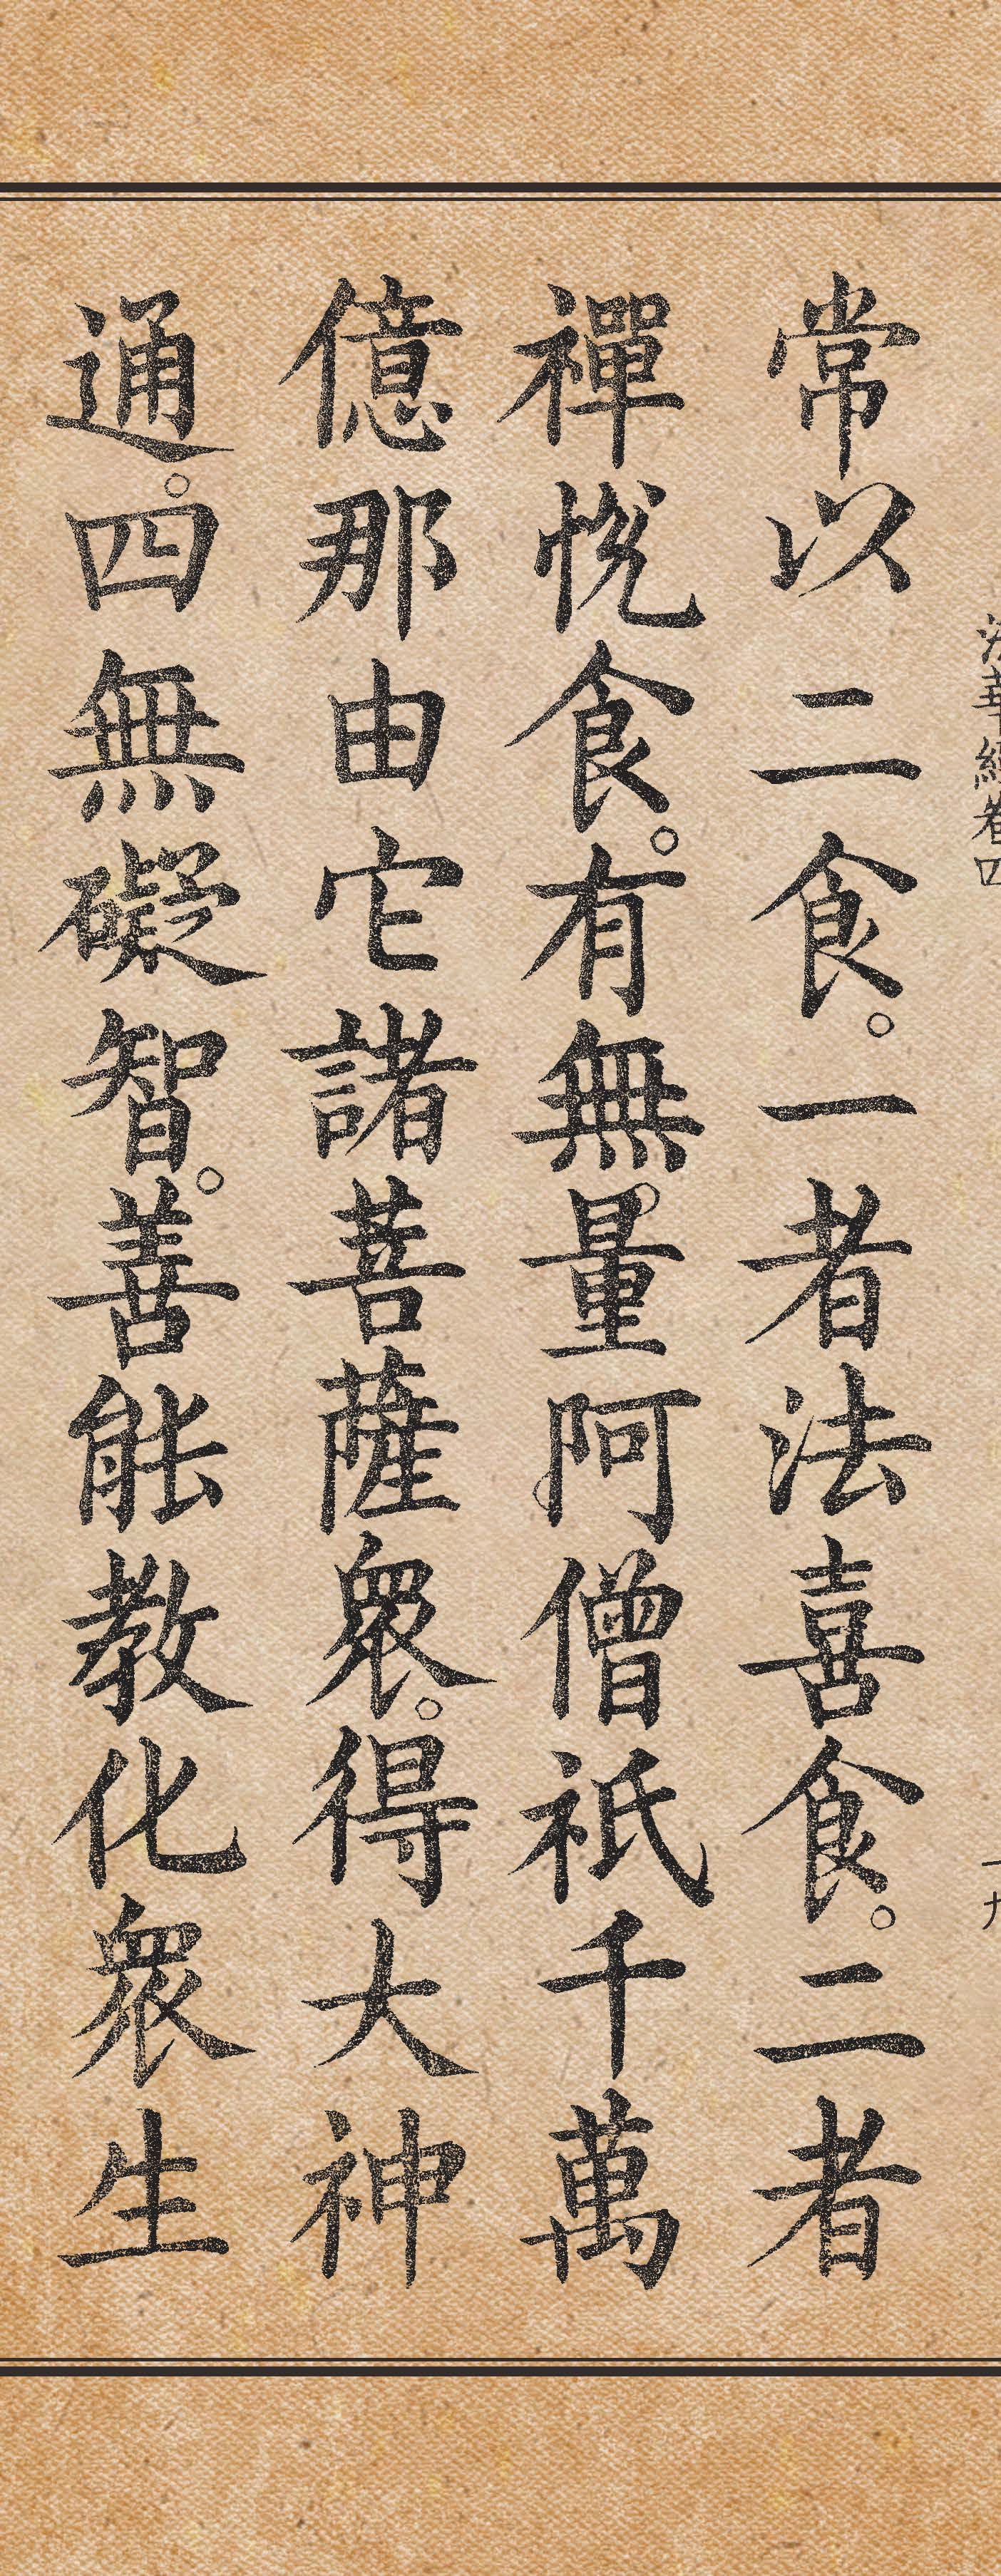 法華經卷四
十九
常以二食。一者法喜食。二者
禪悅食。有無量阿僧祇千萬
億那由它諸菩薩衆。得大神
通。四無礙智。善能教化衆生